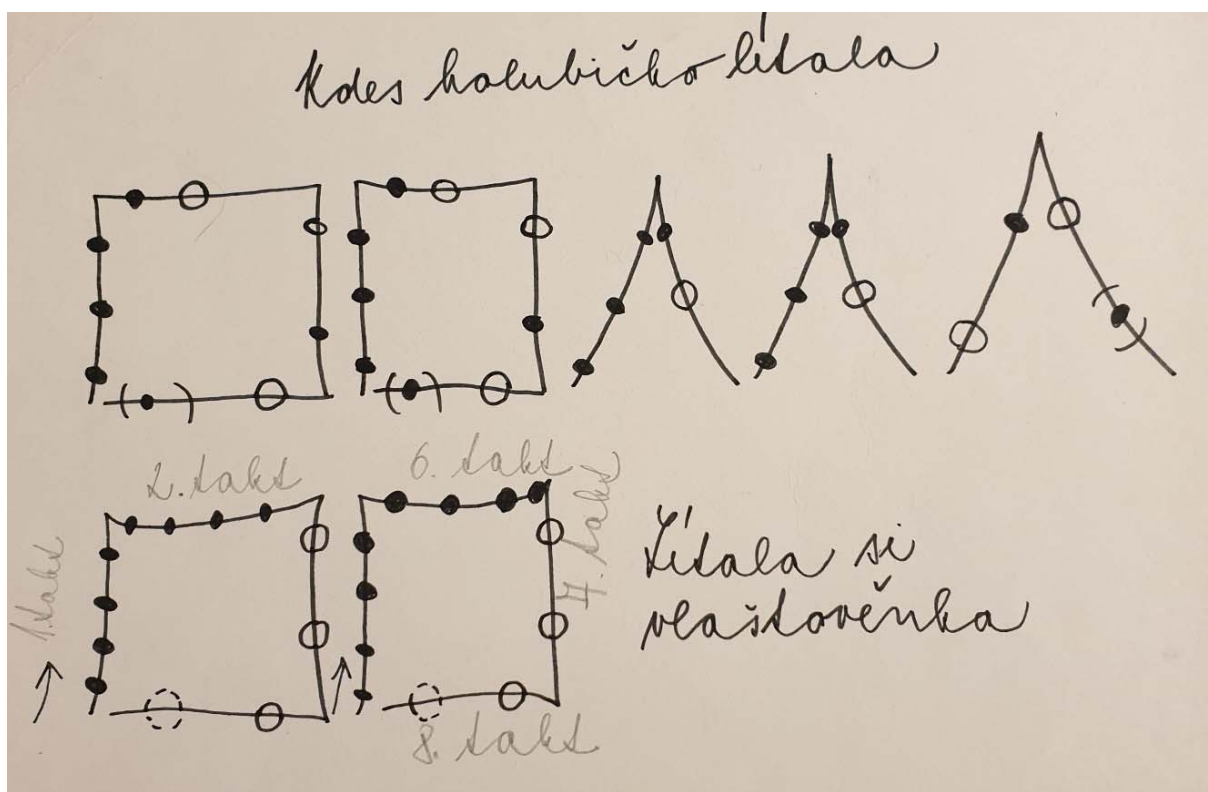 Kdes holubičko lítala
2. takt
6. takt
1. takt
7. takt
Lítala si
vlaštověnka
8. takt